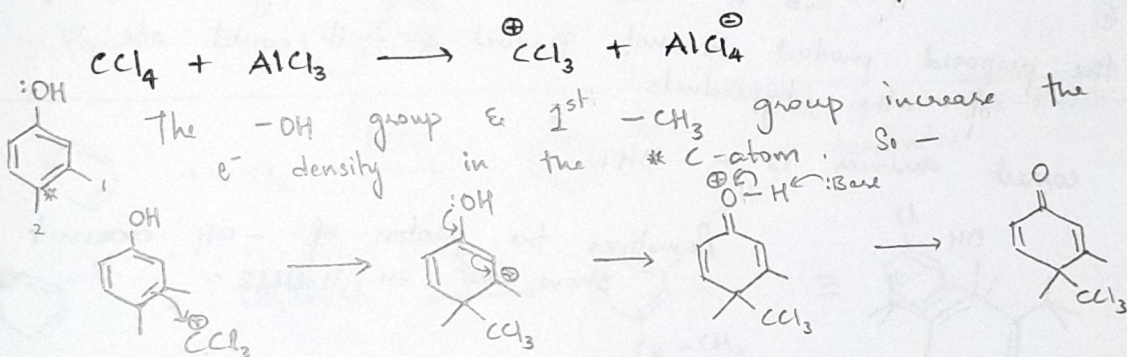 CCl₄ + AlCl₃ ⟶ ⊕CCl₃ + AlCl₄⊖
:OH The -OH group & 1st -CH₃ group increase the
e⁻ density in the * C-atom. So —
* 1 2
OH :OH ⊕ O-H :Base O
⊕ ⊕
⊕ CCl₃ CCl₃ CCl₃ CCl₃